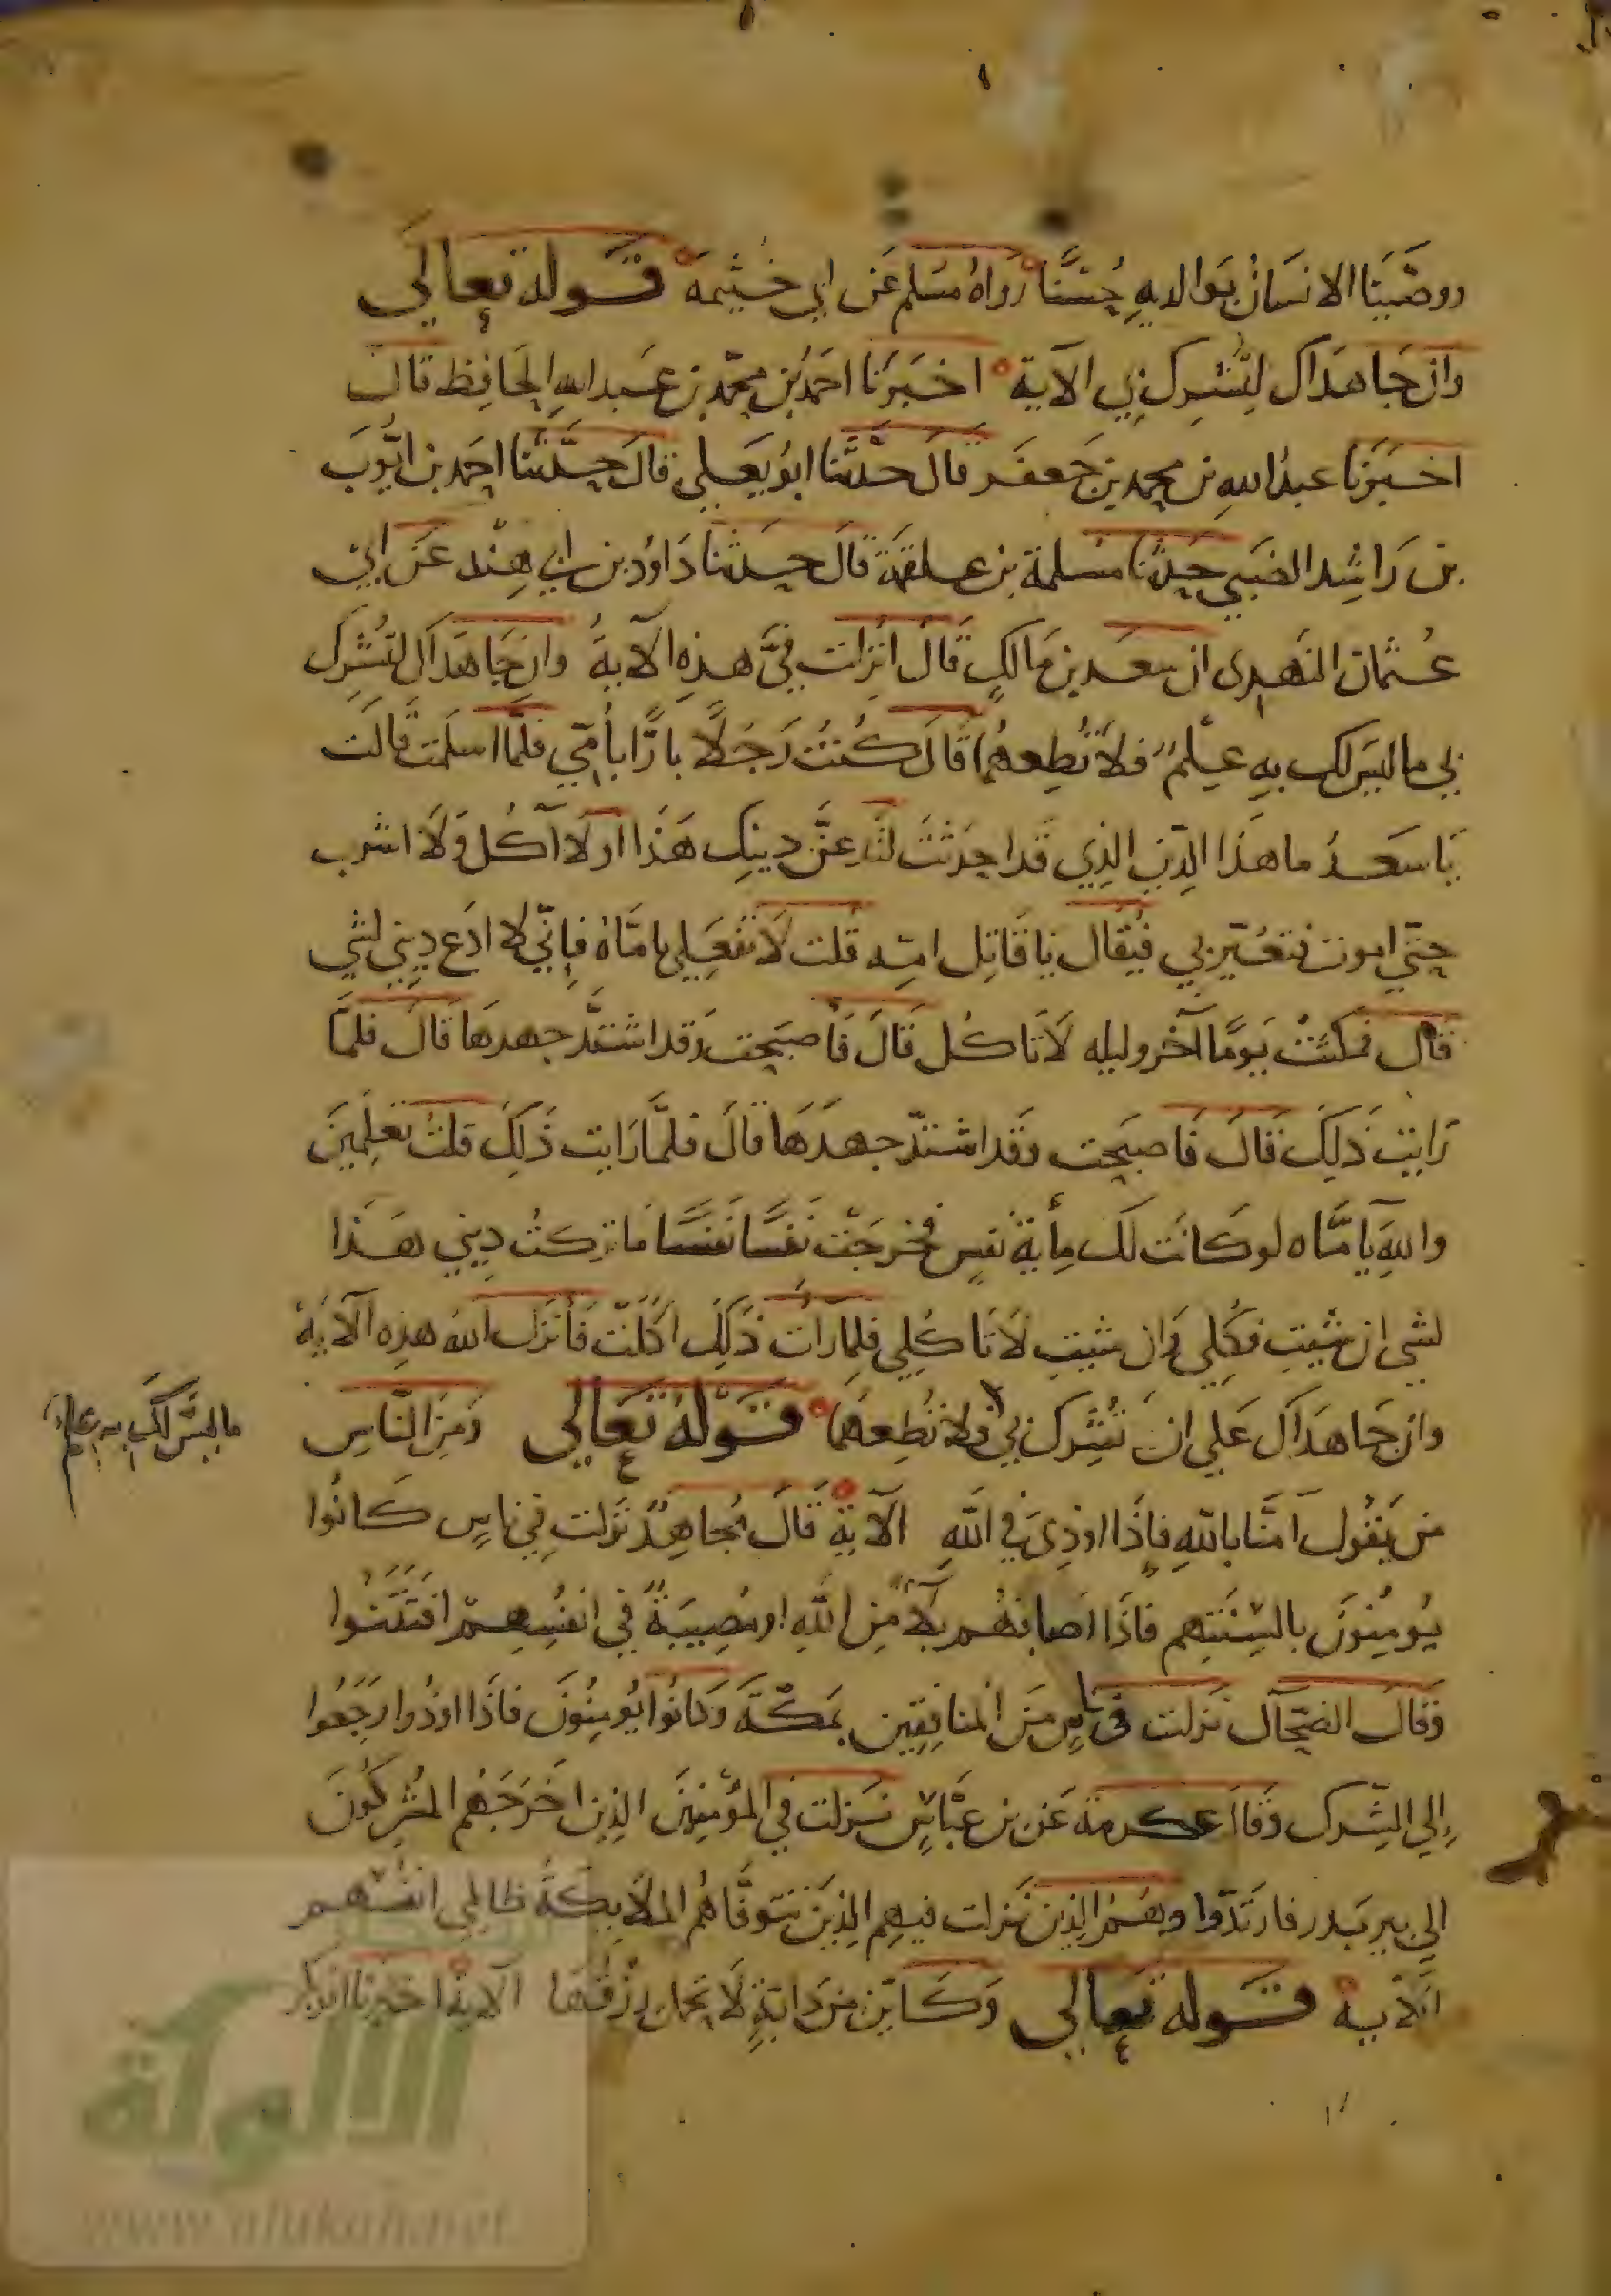 ووصّينا الانسانُ بوالديهِ حُسْنًا رَواهُ مسلم عَن ابي خيثمه قوله تعالى
وان جَاهَداك لِتُشرِك بي الآية اخبَرَنا احمدُ بن محمّد بن عبد اللهِ الحافظ قال
اخبَرَنا عبدُ اللهِ بن محمد بن جَعفر قالَ حدّثنا ابوُ يَعلي قالَ حدّثنا احمد بن ايّوبَ
بن رَاشِد الضبي حدثنا مسلمة بن علقمَة قالَ حدثنا دَاوُد بن ابي هِنْد عَن ابي
عُثمان النهدِي ان سعد بن مَالكٍ قال انزلت فيَّ هذِهِ الآيةُ وان جَاهَداكَ لتُشرِك
بي ما ليسَ لك بهِ عِلمٌ فلا تُطِعهُمَا قالَ كُنتُ رَجُلًا بارًّا بأمّي فلمَّا اسلمت قالَت
يَا سَعدُ ما هَذا الدِّين الذِي قَد احدَثتَ لتَدعنَّ دِينِكَ هَذا او لا آكُل وَلا اشرب
حتّي اموت فتعُيّر بي فيُقال يا قَاتِل امّه قلت لَا تفعَلِي يامَّاهُ فإنّي لا ادَع دِيني لشي
قال فمكثتْ يَومًا آخر وليله لَا تَاكل قالَ فَأصبَحت وَقد اشتدَّ جهدهَا قالَ فلمَّا
رَايت ذَلكَ قالَ فَاصبَحت وقد اشتدّ جهدَهَا قالَ فلمَّا رَايت ذَلِكَ قلتُ تعلِمينَ
واللهِ يَا مَّاه لو كانَت لك مِأيةُ نفسٍ فخرجَتْ نَفسًا نَفسًا مَا تركتُ دِيني هَذا
لشي ان شيتِ فكُلِي وَان شيتِ لَا تَا كُلِي فلمّا رَات ذَلكَ اكلَت فَأنزل اللهُ هذِه الآيةَ
وان جَاهَداكَ عَلي انَ تُشرِك بي فلا تُطِعهُمَا قَولهُ تعَالي وَمِنَ النّاسِ
ما ليسَ لك به علم
مَن يَقول آمَنّا باللهِ فاذَا اوذِيَ في اللهِ الآية قَالَ مُجاهِدٌ نزلت فِي ناسٍ كانُوا
يُومِنونَ بالسِنَتهِم فاذَا اصَابهُم بلآءٌ مِن اللهِ او مُصِيبَةٌ في انفسِهِم افتَتنُوا
وَقالَ الضحّاك نزلت فى ناسٍ مِنَ المنافِقِين بمكّةَ وَكانُوا يُومِنُونَ فاذَا اوذُوا رَجَعُوا
إلي الشِرك وَقالَ عكرمة عَن بن عبّاسٍ نزلت فِي المؤمِنينَ الذِين اخرَجَهُم المشرِكُونَ
الي بدر فارتدّوا وهُمُ الذِين نزلت فيهِم الذِينَ تتوفّاهُم الملايِكة ظالمي انفسهم
الآية قوله تعالي وَكَايّن مِن دَابّةٍ لَا تحمل رِزقهَا الآية اخبرنا ابو بكر
الألوكة
www.alukah.net